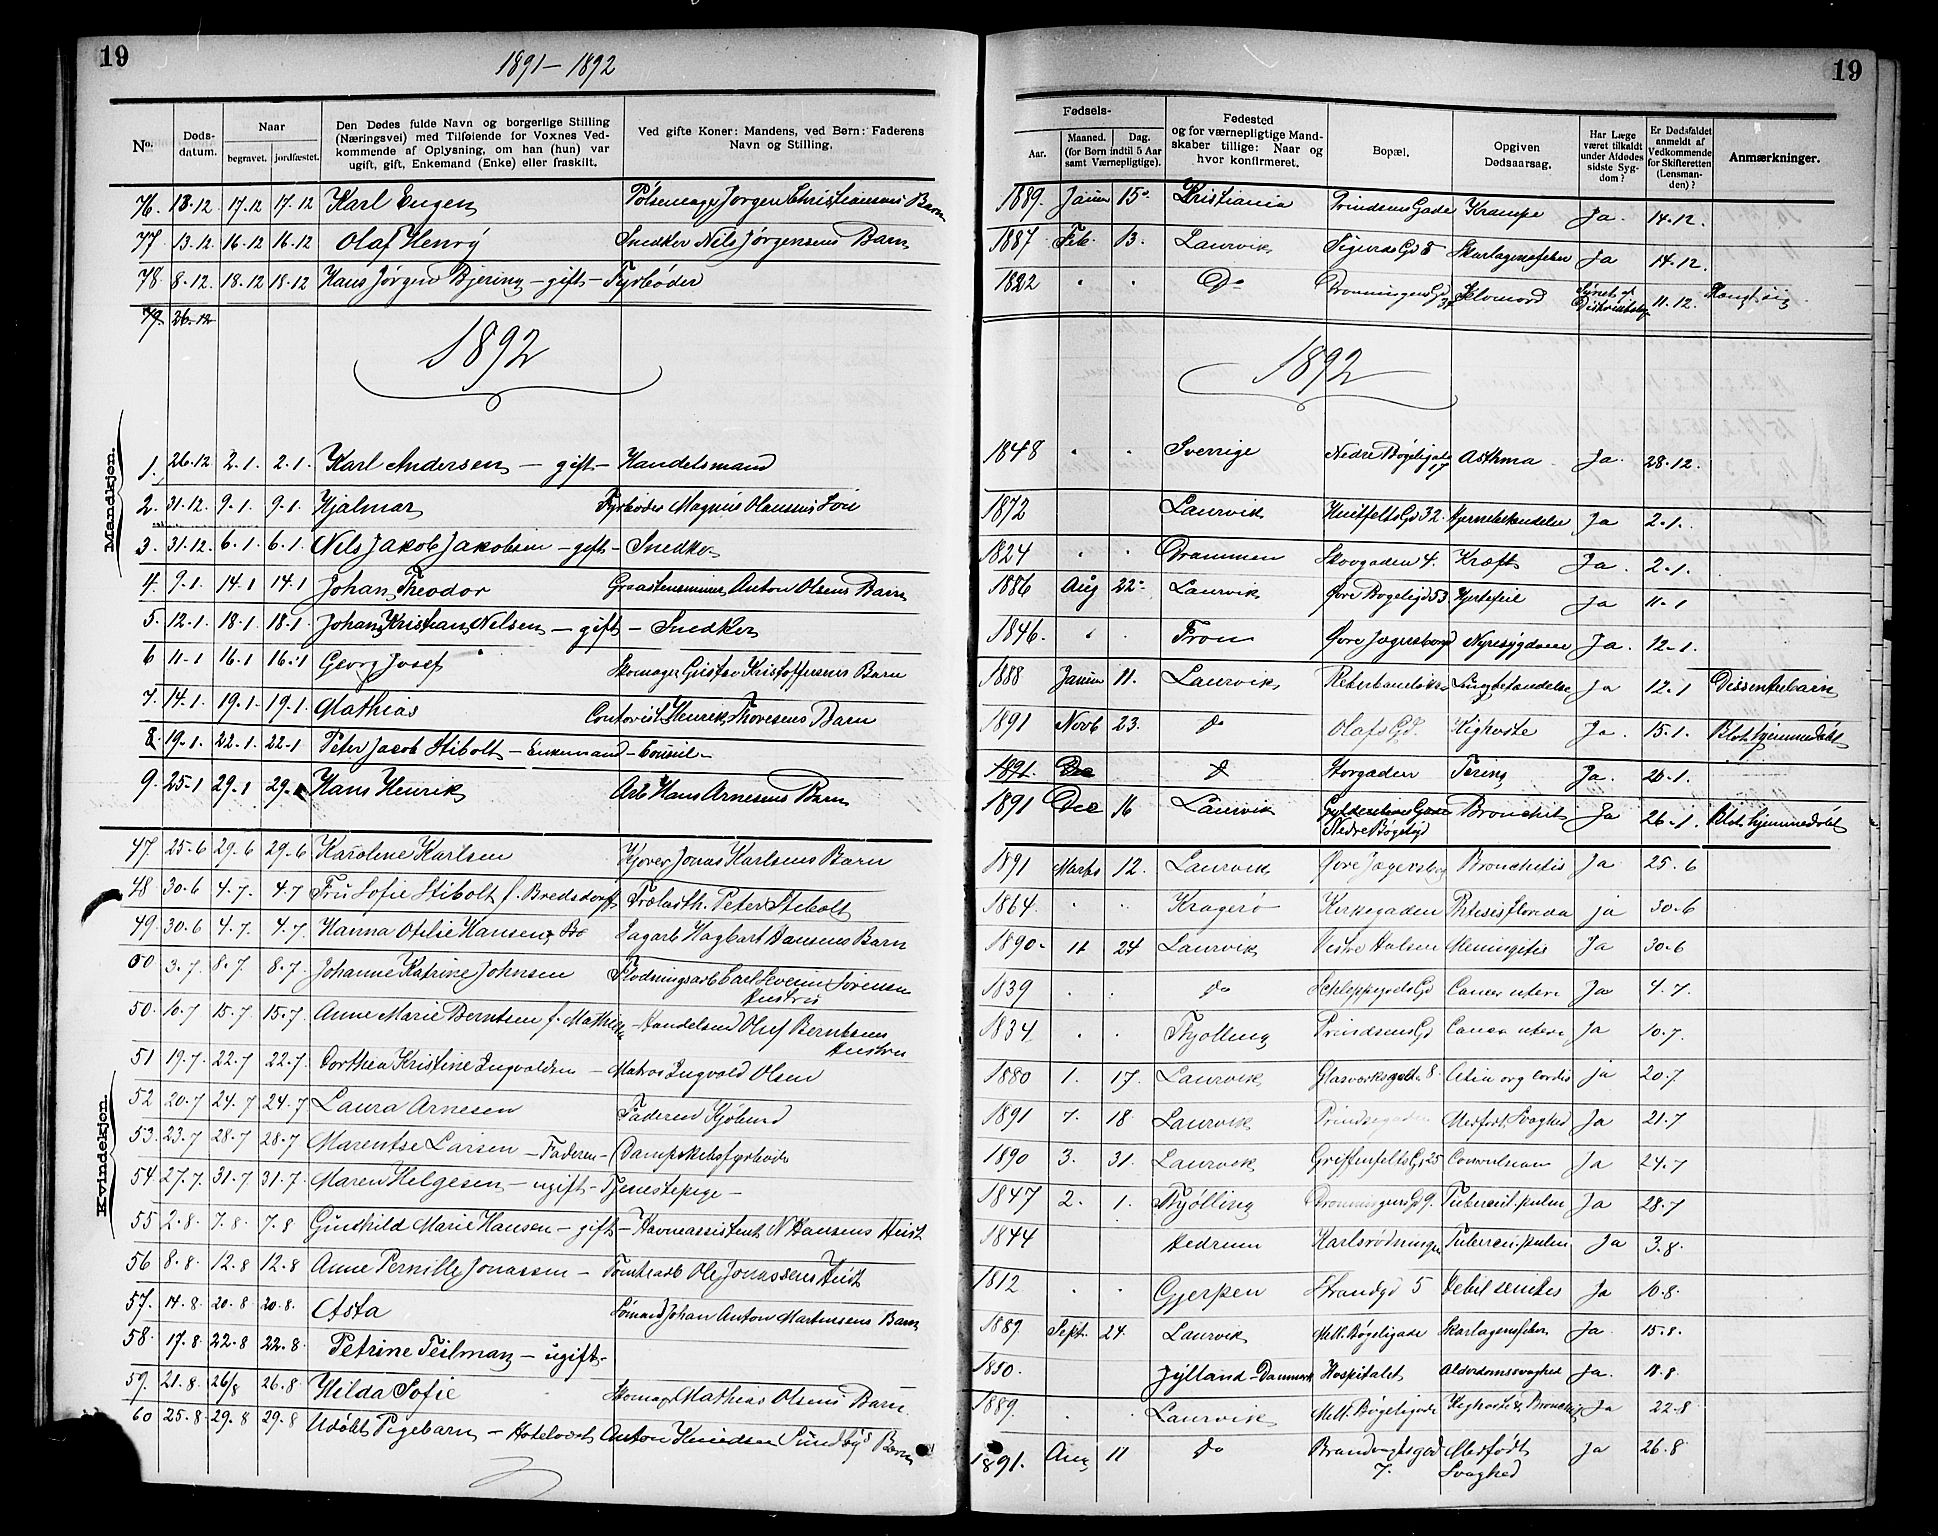 19
1891-1892
No.
Døds-
datum.
Naar
begravet. jordfæstet.
Den Dødes fulde Navn og borgerlige Stilling
(Næringsvei) med Tilføiende for Voxnes Ved-
kommende af Oplysning, om han (hun) var
ugift, gift, Enkemand (Enke) eller fraskilt.
Ved gifte Koner: Mandens, ved Børn: Faderens
Navn og Stilling.
76. 13.12 17.12 17.12 Karl Eugen Pølsemager Jørgen Christiansens Barn
77 13.12 16.12 16.12 Olaf Henry Snedker Nils Jørgensens Barn
78 8.12 18.12 18.12 Hans Jørgen Bjering - gift - Fyrbøder
79. 26.12
1892
Mandkjøn.
1. 26.12 2.1. 2.1. Karl Andersen - gift - Handelsmand
2. 31.12. 9.1. 9.1. Hjalmar Fyrbøder Magnus Olausens Søn
3. 31.12. 6.1. 6.1. Nils Jakob Jakobsen - gift - Snedker
4. 9.1. 14.1 14.1 Johan Theodor Graastensminer Anton Olsens Barn
5. 12.1 18.1 18.1 Johan Kristian Nilsen - gift - Snedker
6 11.1 16.1 16.1 Georg Josef Skomager Gustav Kristoffersens Barn
7. 14.1 19.1 19.1 Mathias Contorist Henrik Thoresens Barn
8. 19.1. 22.1 22.1 Peter Jacob Stibolt - Enkemand - Consul -
9. 25.1 29.1 29. Hans Henrik Arb Hans Arnesens Barn
Kvindekjøn.
47. 25.6 29.6 29.6 Karoline Karlsen Kjører Jonas Karlsens Barn
48 30.6 4.7. 4.7 Fru Sofie Stibolt f. Bredsdorff Trælasth. Peter Stibolt
49. 30.6 4.7. 4.7. Hanna Otilie Hansen Sagarb Hagbart Hansens Barn
50 3.7. 8.7. 8.7. Johanne Katrine Johnsen Flødningsarb Carl Severin Sørensen
Hustru
50. 10.7 15.7 15.7 Anne Marie Berntsen f. - Handelsmd Oluf Berntsens
Hustru
51 19.7 22.7 22.7. Dorthea Kristine Ingvaldsen - Matros Ingvald Olsen
52 20.7 24.7 24.7 Laura Arnesen Faderen Kjølmd
53. 23.7 28.7 28.7 Marentse Larsen - Faderen - Dampskibsfyrbøder
54 27.7. 31.7 31.7 Maren Helgesen - ugift - Tjenestepige -
55 2.8. 7.8. 7.8 Gunhild Marie Hansen - gift - Havneassistent N Hansens Hust
56 8.8. 12.8 12.8 Anne Pernille Jonassen - Tomtearb Ole Jonassens Hust
57. 14.8. 20.8 20.8. Asta Sømand Johan Anton Martinsens Barn
58. 17.8 22.8 22.8. Petrine Teilman - ugift -
59. 21.8. 26/8 26.8 Hilda Sofie Skomager Mathias Olsens Barn.
60 25.8 29.8 29.8 Udøbt Pigebarn - Hotelvært Anton Knudsen Sundby's Barn
19
Fødsels-
Aar.
Maaned. Dag.
(for Børn indtil 5 Aar
samt Værnepligtige).
Fødested
og for værnepligtige Mand-
skaber tillige: Naar og
hvor konfirmeret.
Bopæl.
Opgiven
Dødsaarsag.
Har Læge
været tilkaldt
under Afdødes
sidste Syg-
dom?
Er Dødsfaldet
anmeldt af
Vedkommende
for Skifteretten
(Lensman-
den)?
Anmærkninger.
1889. Januar 15. Kristiania Prindsens Gade Krampe Ja. 14.12.
1887 Feb. 13. Laurvik Sigurds Gd 8 Skarlagensfeber Ja 14.12.
1822 " " Do Dronningens Gd Selvmord Synet af 11.12. Hængt sig
Distriktslæge
1892
1848 " " Sverrige Nedre Bøgeligade Asthma Ja. 28.12.
17
1872 Laurvik Hueitfelts Gd 32. Hjernebetændelse Ja 2.1.
1824 " " Drammen Skovgaden 4. Kræft Ja. 2.1.
1886 Aug 22. Laurvik Øvre Bøgeligd 53 Hjertefeil Ja 11.1
1846. " . Fron Øvre Jægersborg Nyresygdom Ja. 12.1
1888 Januar 11. Laurvik Reberbanebakken Lungebetændelse Ja 12.1 Dissenterbarn
1891 Novb 23. do Olafs Gd. Kighoste Ja. 15.1. Blot hjemmedøbt
1891. Dec do Storgaden Tæring Ja. 20.1.
1891 Dec 16 Laurvik Gyldenløves Gade Bronchit Ja 26.1 Blot hjemmedøbt
Nedre Bøgeligd
1891 Marts 12. Laurvik Øvre Jægersborg Bronchitis Ja 25.6
1864. Kragerø Kirkegaden Phtisis Florida ja 30.6
1890. 11 24 Laurvik Vestre Halsen Meningitis Ja 30.6
1839 . . do Schleppegrels Gd Cancer uteri Ja 4.7.
1834 . . Tjølling Prindsens Gd Cancer uteri Ja 10.7.
1880 1. 17. Laurvik Glasværksgaden 8. Vitia org cordis ja 20.7
1891 7. 18. Laurvik Prindsegaden Medfødt Svaghed Ja 21.7
1890 3. 31. Laurvik Griffenfelts Gd 25 Convulsion Ja 24.7
1847 2. 1. Tjølling Dronningens Gd 9. Tubercul. pulm Ja 28.7
1844 Hedrum Karlsrødningen Tubercu. pulm Ja 3.8.
1812 . . Gjerpen Strandgd 5 Debil seniles Ja 10.8.
1889 Sept. 24. Laurvik Mell. Bøgeligade Skarlagensfeber Ja. 15.8.
1850. Jylland - Danmark Hospitalet Alderdomssvaghed Ja. 18.8.
1889. . . Laurvik Mell. Bøgeligade Kighoste & Bronchit Ja 22.8
1891. Aug 11 do Brandvagtsgad Medfødt Ja 26.8
7. Svaghed